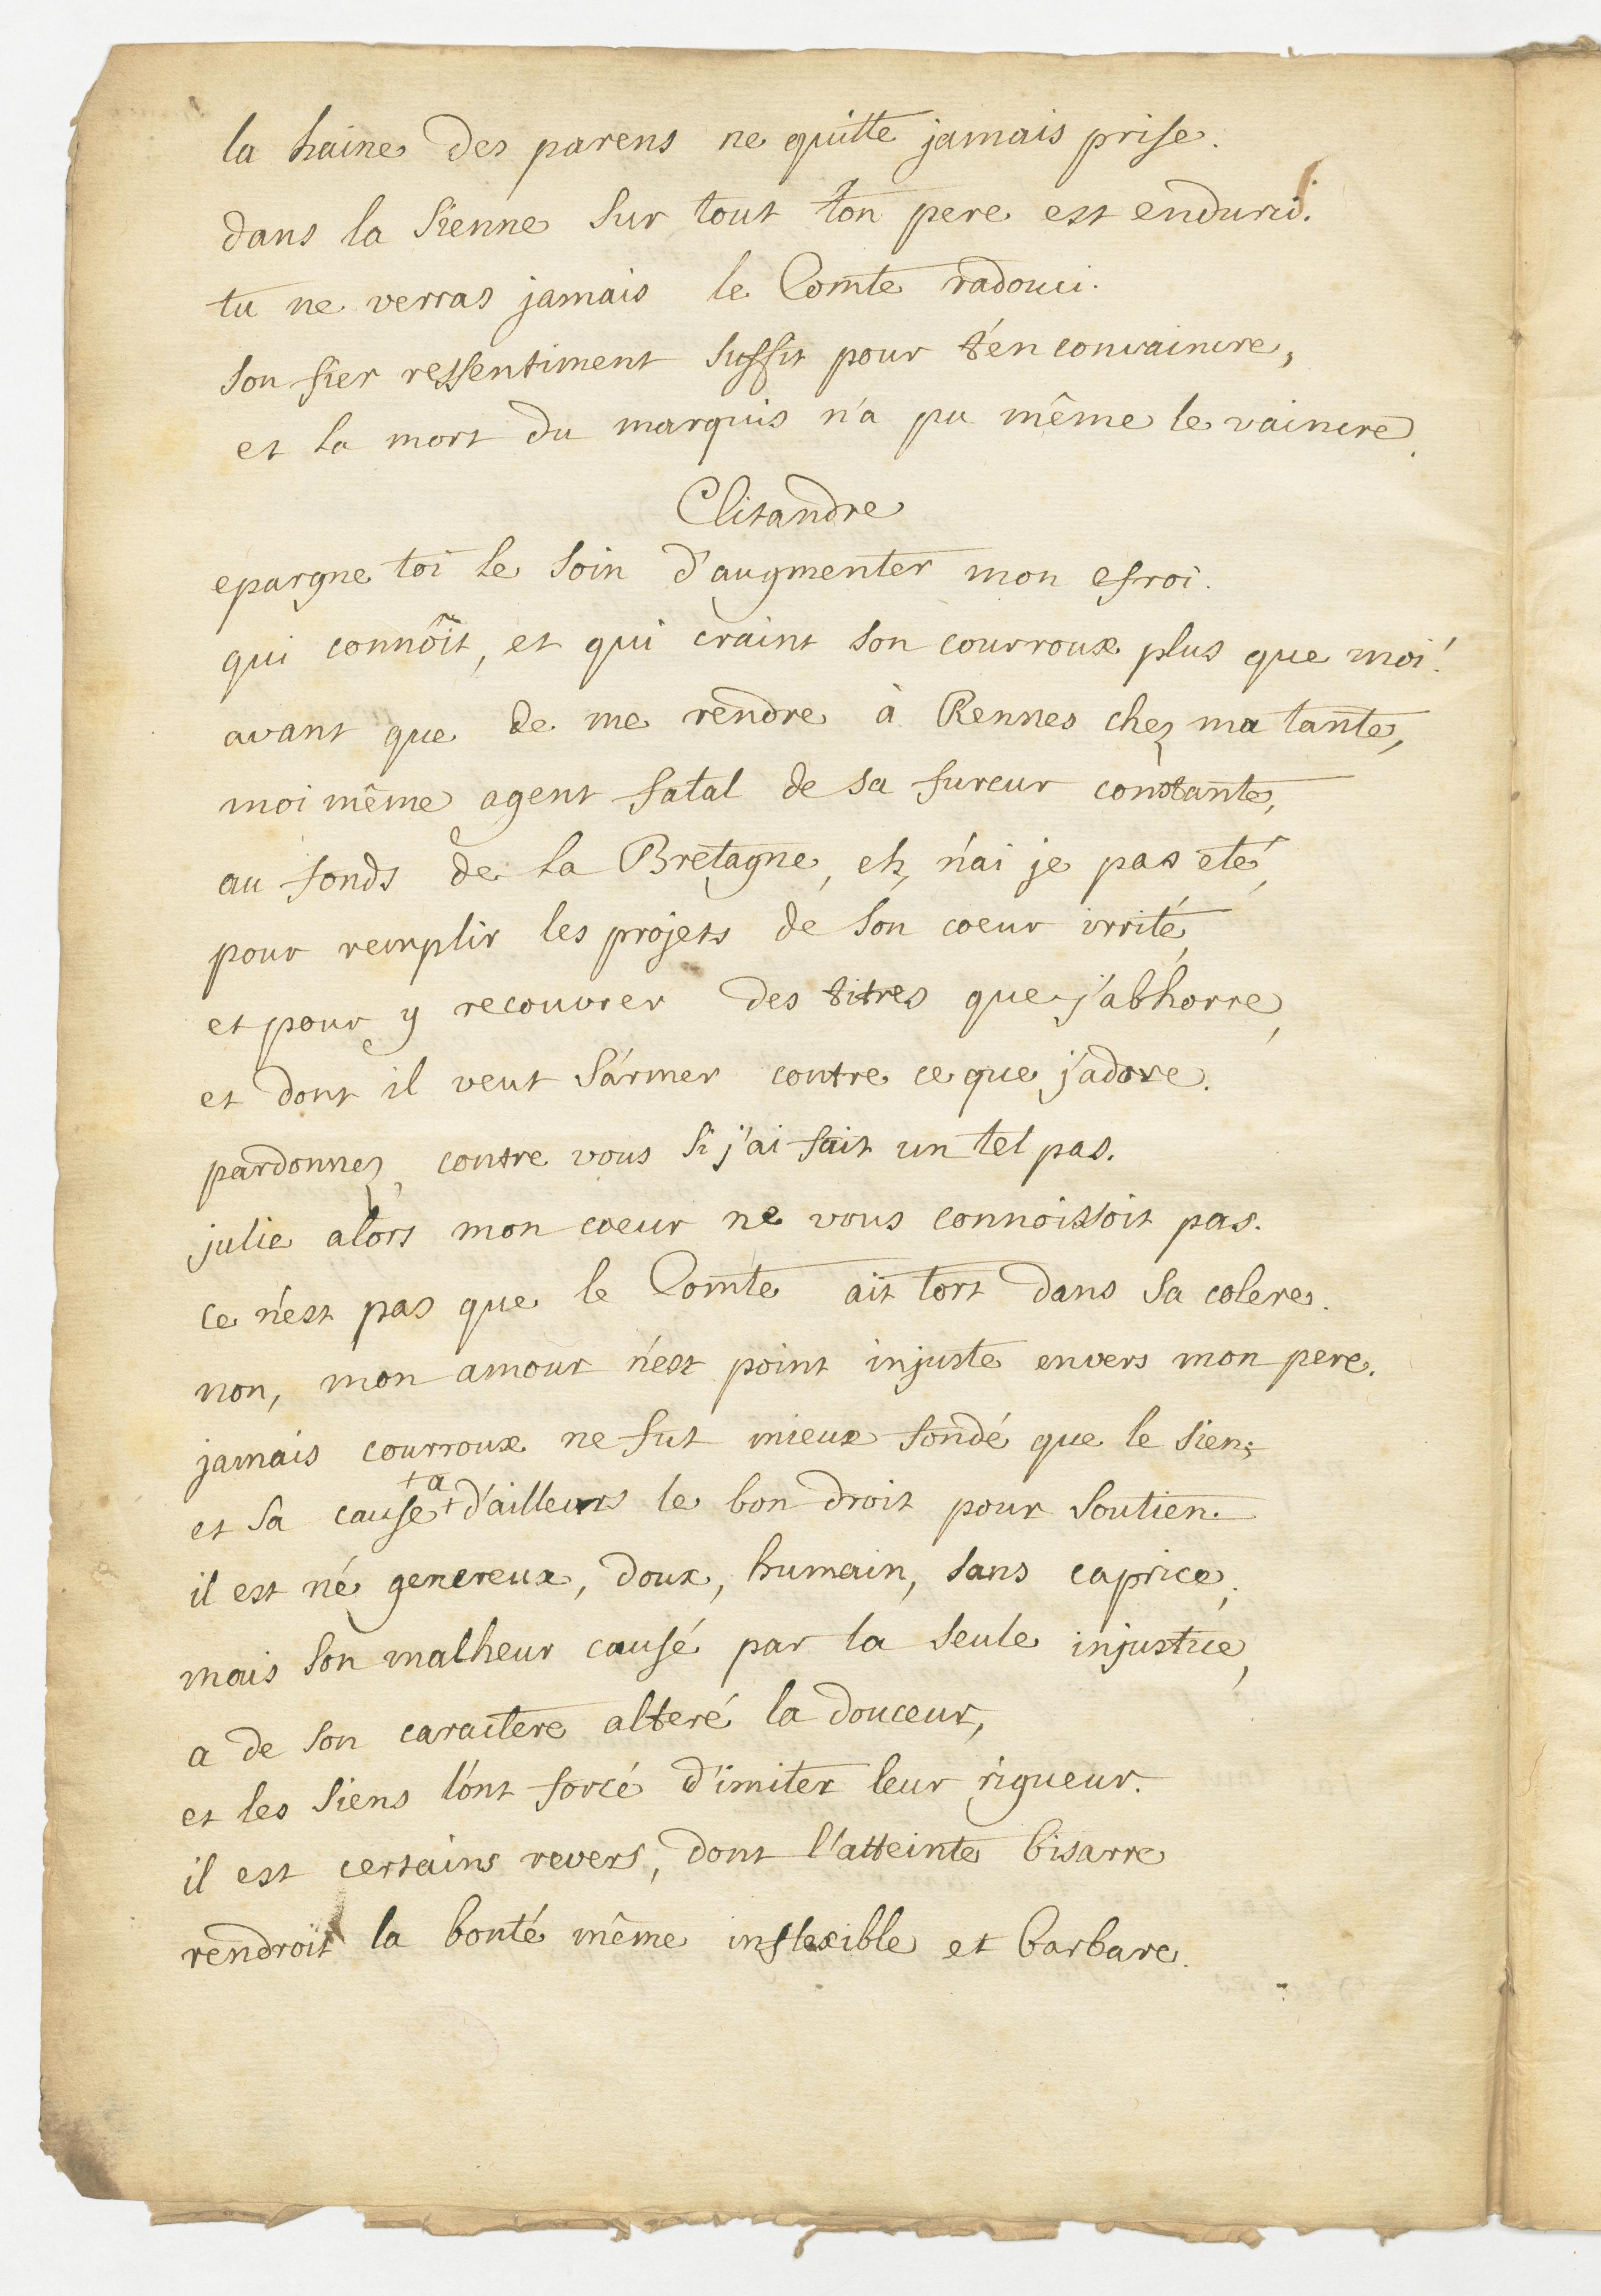 la haine des parens ne quitte jamais prise.
dans la sienne sur tout ton pere est endurci.
tu ne verras jamais le Comte radouci.
son fier ressentiment suffit pour t'en convaincre,
et la mort du marquis n'a pu même le vaincre.
Clitandre
epargne toi le soin d'augmenter mon efroi.
qui connôit, et qui craint son courroux plus que moi!
avant que de me rendre à Rennes chez ma tante,
moi même agent fatal de sa fureur constante,
au fonds de la Bretagne, eh, n'ai je pas eté,
pour remplir les projets de son coeur irrité,
et pour y recouvrer des titres que j'abhorre,
et dont il veut s'armer contre ce que j'adore.
pardonnez, contre vous si j'ai fait un tel pas.
julie alors mon coeur ne vous connoissoit pas.
ce n'est pas que le Comte ait tort dans sa colere.
non, mon amour n'est point injuste envers mon pere.
jamais courroux ne fut mieux fondé que le sien;
et sa cause +a+ d'ailleurs le bon droit pour soutien.
il est né genereux, doux, humain, sans caprice;
mais son malheur causé par la seule injustice,
a de son caractere alteré la douceur,
et les siens l'ont forcé d'imiter leur rigueur.
il est certains revers, dont l'atteinte bisarre
rendroit la bonté même inflexible et barbare.